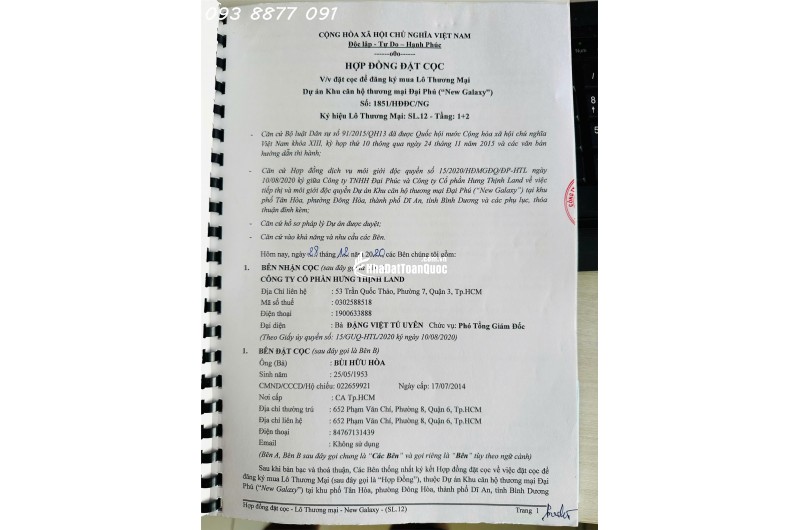 093 8877 091
CỘNG HÒA XÃ HỘI CHỦ NGHĨA VIỆT NAM
Độc lập - Tự Do – Hạnh Phúc
-----o0o-----
HỢP ĐỒNG ĐẶT CỌC
V/v đặt cọc để đăng ký mua Lô Thương Mại
Dự án Khu căn hộ thương mại Đại Phú (“New Galaxy”)
Số: 1851/HĐĐC/NG
Ký hiệu Lô Thương Mại: SL.12 - Tầng: 1+2
- Căn cứ Bộ luật Dân sự số 91/2015/QH13 đã được Quốc hội nước Cộng hòa xã hội chủ nghĩa
Việt Nam khóa XIII, kỳ họp thứ 10 thông qua ngày 24 tháng 11 năm 2015 và các văn bản
hướng dẫn thi hành;
- Căn cứ Hợp đồng dịch vụ môi giới độc quyền số 15/2020/HĐMGĐQ/ĐP-HTL ngày
10/08/2020 ký giữa Công ty TNHH Đại Phúc và Công ty Cổ phần Hưng Thịnh Land về việc
tiếp thị và môi giới độc quyền Dự án Khu căn hộ thương mại Đại Phú (“New Galaxy”) tại khu
phố Tân Hòa, phường Đông Hòa, thành phố Dĩ An, tỉnh Bình Dương và các phụ lục, thỏa
thuận đính kèm;
- Căn cứ hồ sơ pháp lý Dự án được duyệt;
- Căn cứ vào khả năng và nhu cầu các Bên.
Hôm nay, ngày 28 tháng 12 năm 2020 các Bên chúng tôi gồm:
1. BÊN NHẬN CỌC (sau đây gọi
NhaDatToanQuoc
CÔNG TY CỔ PHẦN HƯNG THỊNH LAND
Địa Chỉ liên hệ : 53 Trần Quốc Thảo, Phường 7, Quận 3, Tp.HCM
Mã số thuế : 0302588518
Điện thoại : 1900633888
Đại diện : Bà ĐẶNG VIỆT TÚ UYÊN Chức vụ: Phó Tổng Giám Đốc
(Theo Giấy ủy quyền số: 15/GUQ-HTL/2020 ký ngày 10/08/2020)
1. BÊN ĐẶT CỌC (sau đây gọi là Bên B)
Ông (Bà) : BÙI HỮU HÒA
Sinh năm : 25/05/1953
CMND/CCCD/Hộ chiếu: 022659921 Ngày cấp: 17/07/2014
Nơi cấp : CA Tp.HCM
Địa chỉ thường trú : 652 Phạm Văn Chí, Phường 8, Quận 6, Tp.HCM
Địa chỉ liên hệ : 652 Phạm Văn Chí, Phường 8, Quận 6, Tp.HCM
Điện thoại : 84767131439
Email : Không sử dụng
(Bên A, Bên B sau đây gọi chung là "Các Bên" và gọi riêng là "Bên" tùy theo ngữ cảnh)
Sau khi bàn bạc và thoả thuận, Các Bên thống nhất ký kết Hợp đồng đặt cọc về việc đặt cọc để
đăng ký mua Lô Thương Mại (sau đây gọi là “Hợp Đồng”), thuộc Dự án Khu căn hộ thương mại Đại
Phú (“New Galaxy”) tại khu phố Tân Hòa, phường Đông Hòa, thành phố Dĩ An, tỉnh Bình Dương
Hợp đồng đặt cọc - Lô Thương mại - New Galaxy - (SL.12) Trang 1